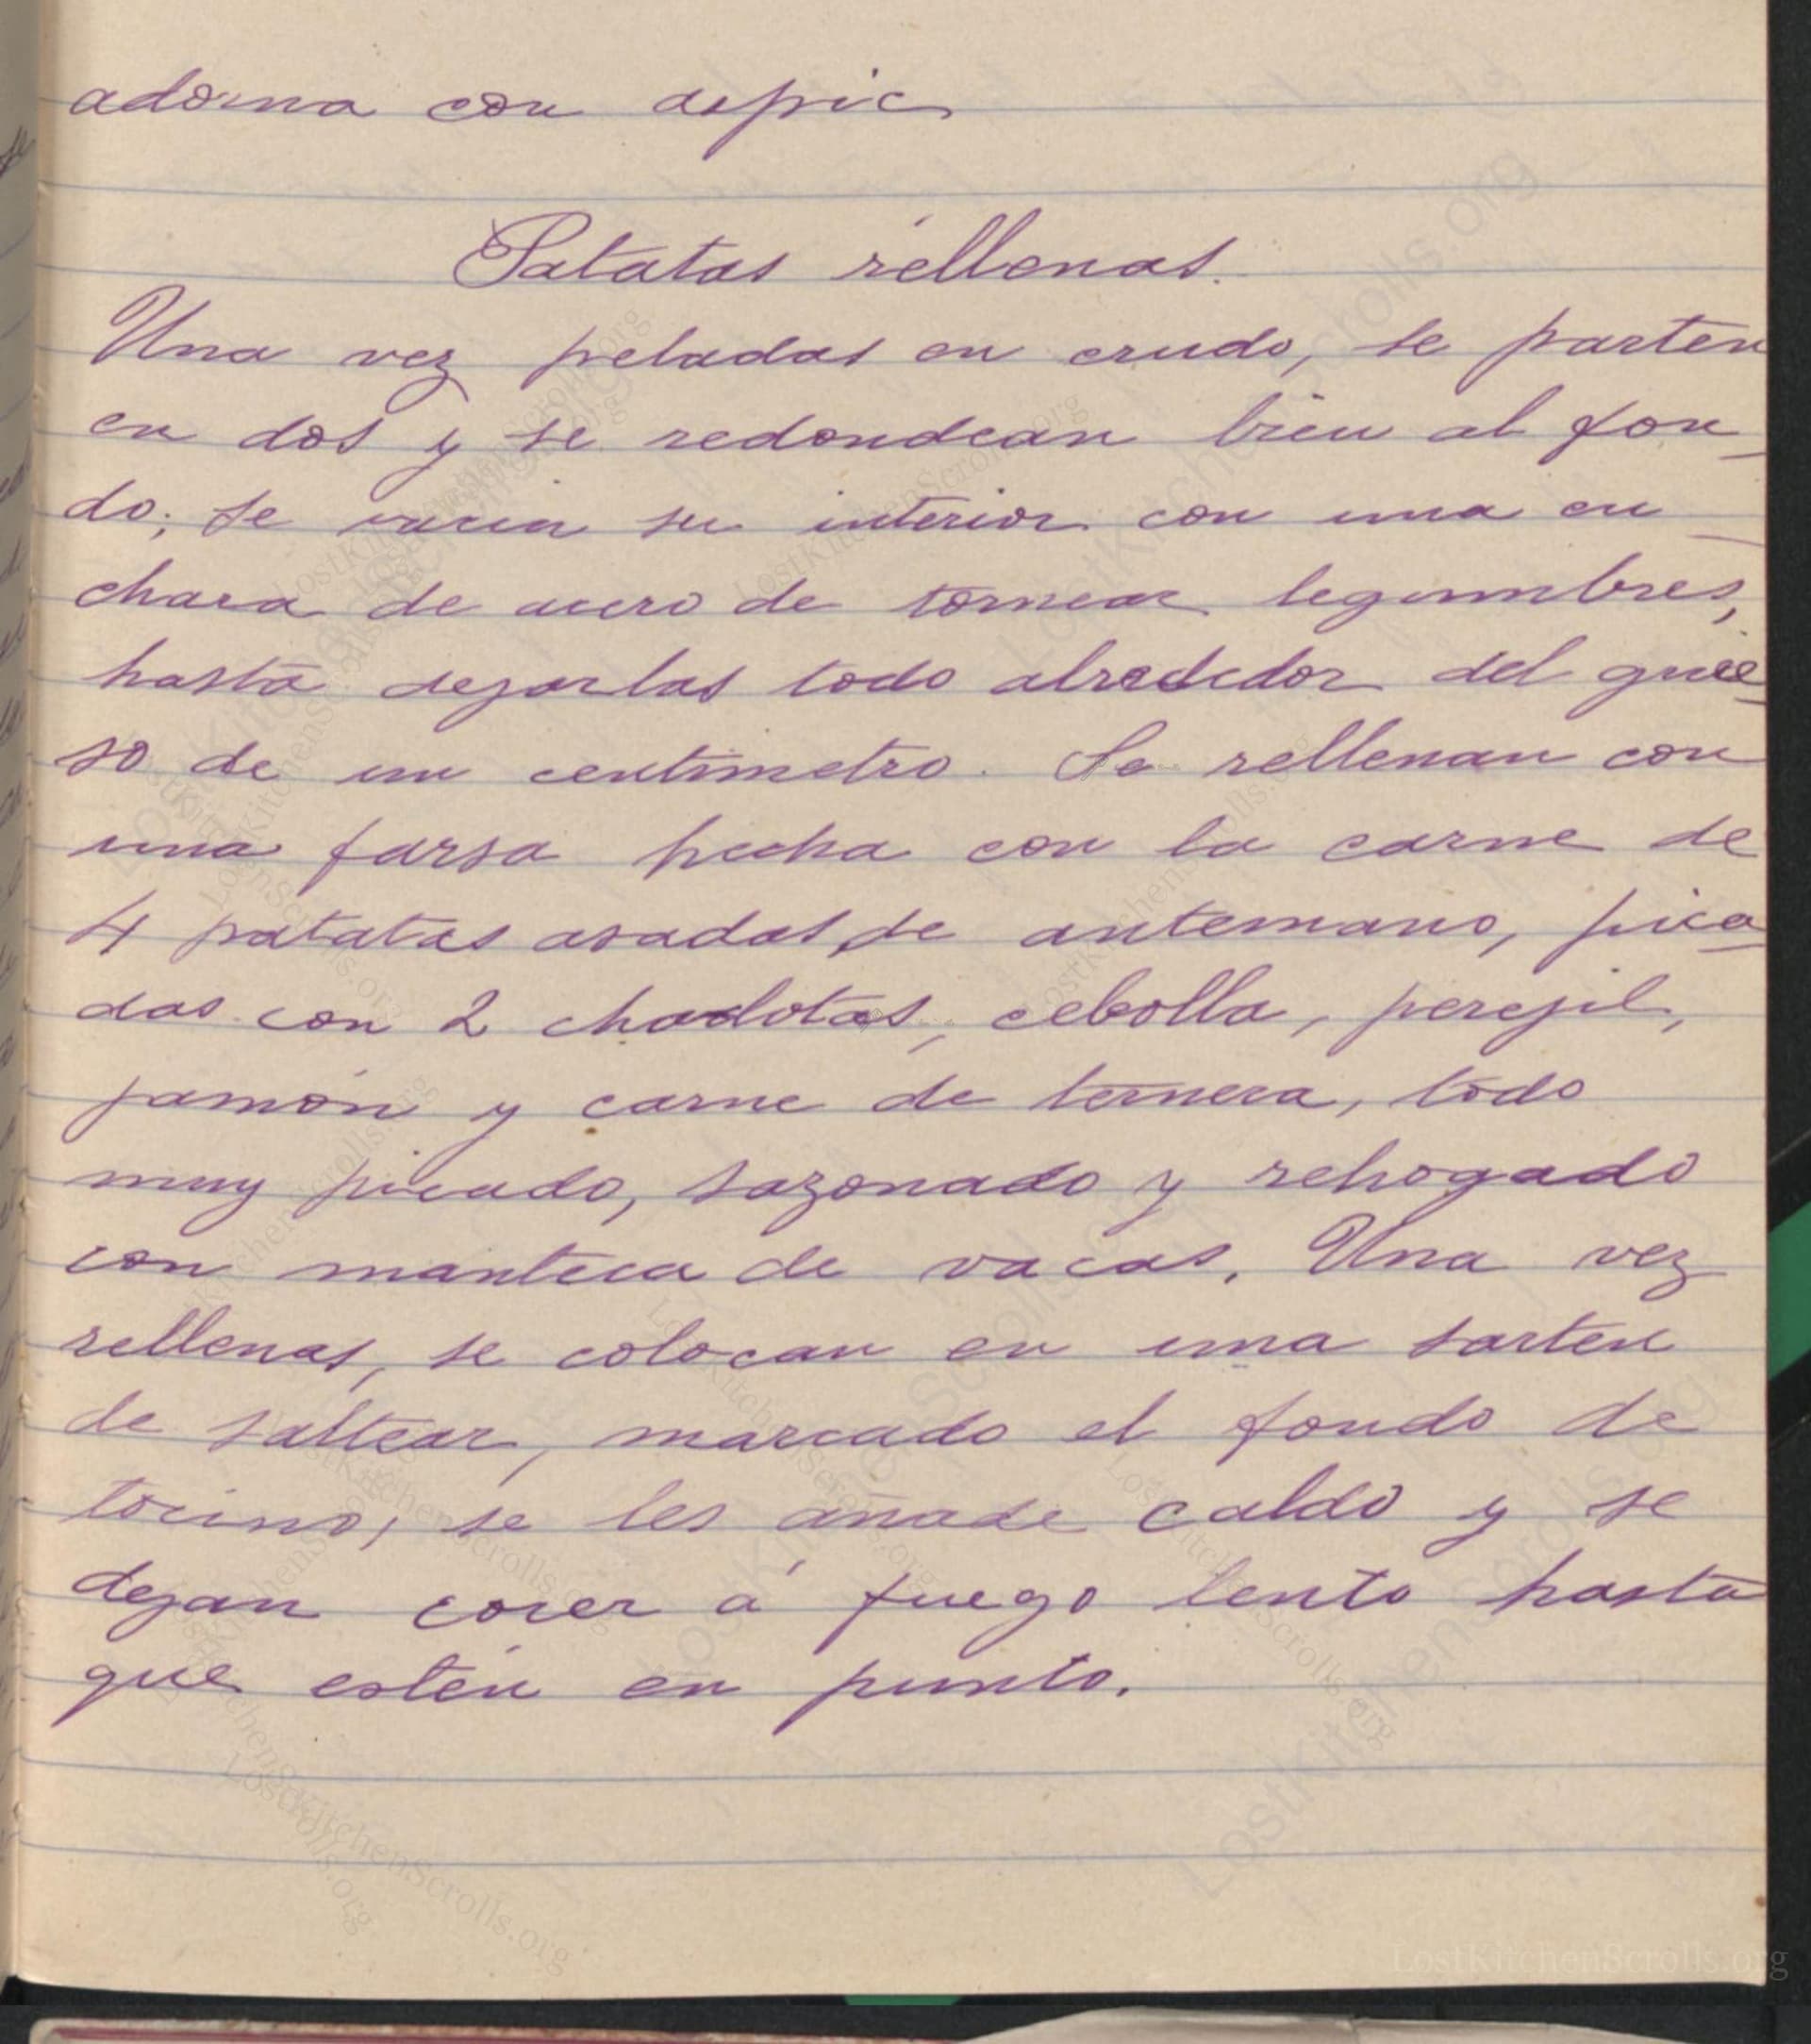 adorna con aspic
Patatas rellenas.
Una vez peladas en crudo, se parten
en dos y se redondean bien al fon-
do; se vacía su interior con una cu-
chara de acero de tornear legumbres,
hasta dejarlas todo alrededor del grue-
so de un centímetro. Se rellenan con
una farsa hecha con la carne de
4 patatas asadas de antemano, pica-
das con 2 chadotas, cebolla, perejil,
jamón y carne de ternera, todo
muy picado, sazonado y rehogado
con manteca de vacas. Una vez
rellenas, se colocan en una sarten
de saltear, marcado el fondo de
tocino; se les añade caldo y se
dejan cocer á fuego lento hasta
que estén en punto.
LostKitchenScrolls.org